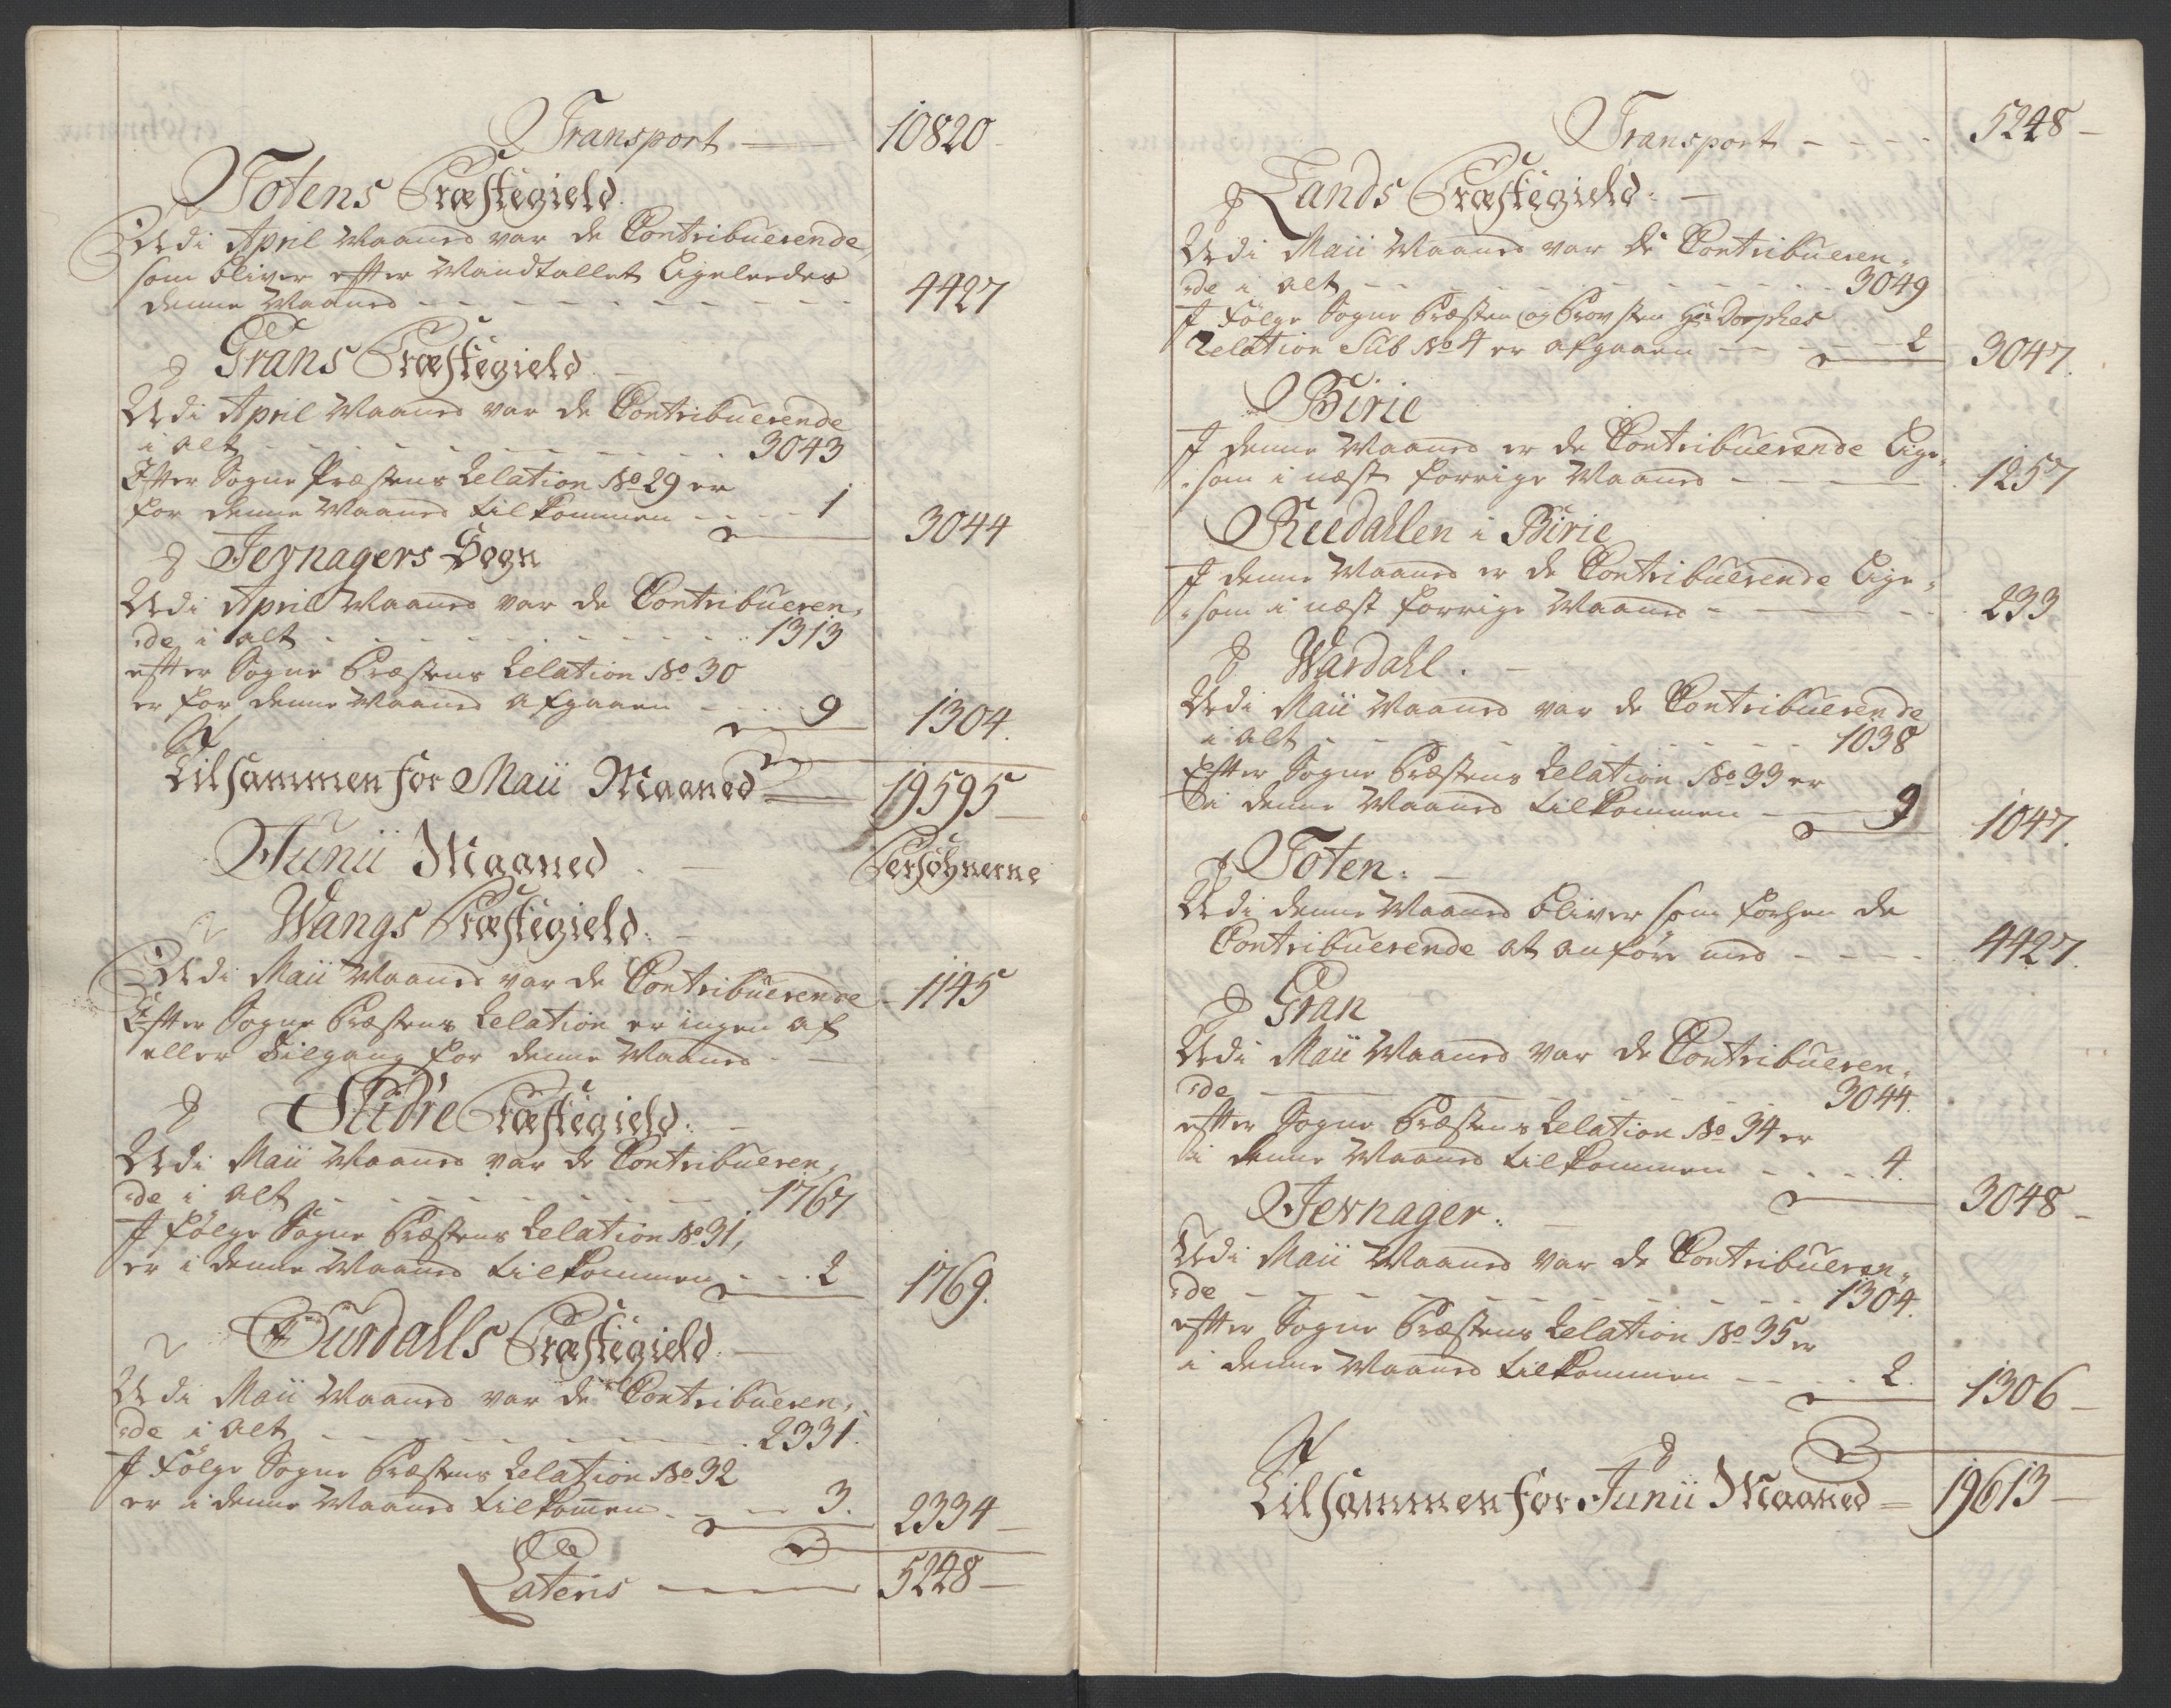 Transport — 10820 -
Totens Præstegield.
Udi April Maaned var de Contribuerende,
som bliver efter Mandtallet ligeleedes
denne Maaned - - - 4427
Grans Præstegield. -
Udi April Maaned var de Contribuerende
i alt - - - 3043
Efter Sogne Præstens Relation No 29 er
for denne Maaned tilkommen - - - 1
3044
Jevnagers Sogn
Udi April Maaned var de Contribueren,
:de i alt - - - 1313
efter Sogne Præstens Relation No 30
er for denne Maaned afgaaen - - - 9
1304.
Tilsammen for Maii Maaned 19595 —
Junii Maaned. — Persohnerne
Wangs Præstegield. -
Udi Maii Maaned var de Contribuerende - 1145
Efter Sogne Præstens Relation er ingen af
eller Tilgang for denne Maaned - —
Slidre Præstegield. -
Udi Maii Maaned var de Contribueren,
:de i alt - - - 1767
J følge Sogne Præstens Relation No 31,
er i denne Maaned tilkommen - - - 2
1769.
Ourdalls Præstegield. —
Udi Maii Maaned var de Contribueren,
:de i alt - - - 2331.
J Følge Sogne Præstens Relation No 32
er i denne Maaned tilkom̄en - - - 3.
2334 —
Lateris — 5248 —
Transport - - - 5248 —
Lands Præstegield. —
Udi Maii Maaned var de Contribueren,
:de i alt - - - 3049
J Følge Sogne Præsten og Provsten Hr Dorphes
Relation Sub No 4 er afgaaen - - - 2
3047.
Birie
J denne Maaned er de Contribuerende lige,
:som i næst forrige Maaned - - - 1257
Reedahlen i Birie
J denne Maaned er de Contribuerende lige,
:som i næst forrige Maaned - - - 233
Wardahl. -
Udi Maii Maaned var de Contribuerende
i alt - - - 1038
Efter Sogne Præstens Relation No 33 er
i denne Maaned tilkommen - - - 9
1047.
Toten. -
Udi denne Maaned bliver som forhen de
Contribuerende at anføre med - - - 4427.
Gran
Udi Maii Maaned var de Contribueren,
:de - - - 3044.
efter Sogne Præstens Relation No 34 er
i denne Maaned tilkommen - - - 4.
3048 —
Jevnager. -
Udi Maii Maaned var de Contribueren,
:de - - - 1304.
efter Sogne Præstens Relation No 35 er
i denne Maaned tilkommen - - - 2.
1306 —
Tilsammen for Junii Maaned = 19613 —